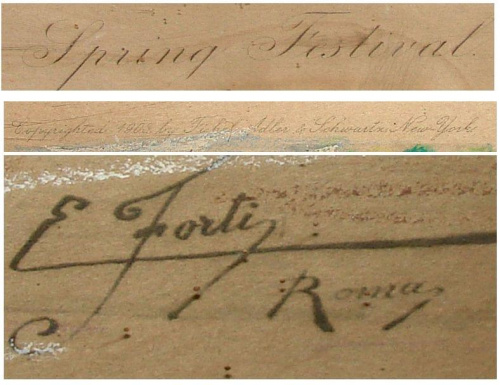 Spring Festival.
Copyrighted 1903 by Fishel, Adler & Schwartz, New York
E Forti
Roma